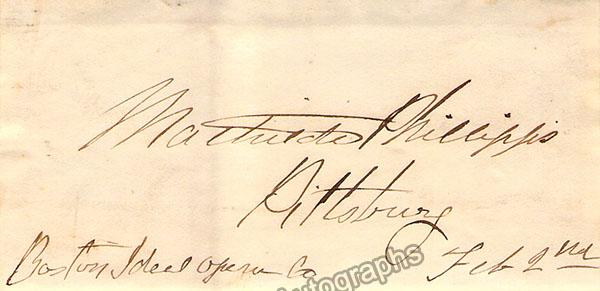 Mathilde Phillipps
Pittsburg
Boston Ideal opera Co Feb 2nd
Autographs